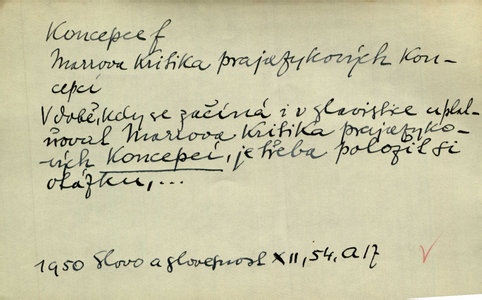 Koncepce f
Marrova kritika prajazykových kon-
cepcí
V době, kdy se začíná i v slavistice uplat-
ňovat Marrova kritika prajazyko-
vých koncepcí, je třeba položit si
otázku, ...
1950 Slovo a slovesnost XII, 54, A17
V